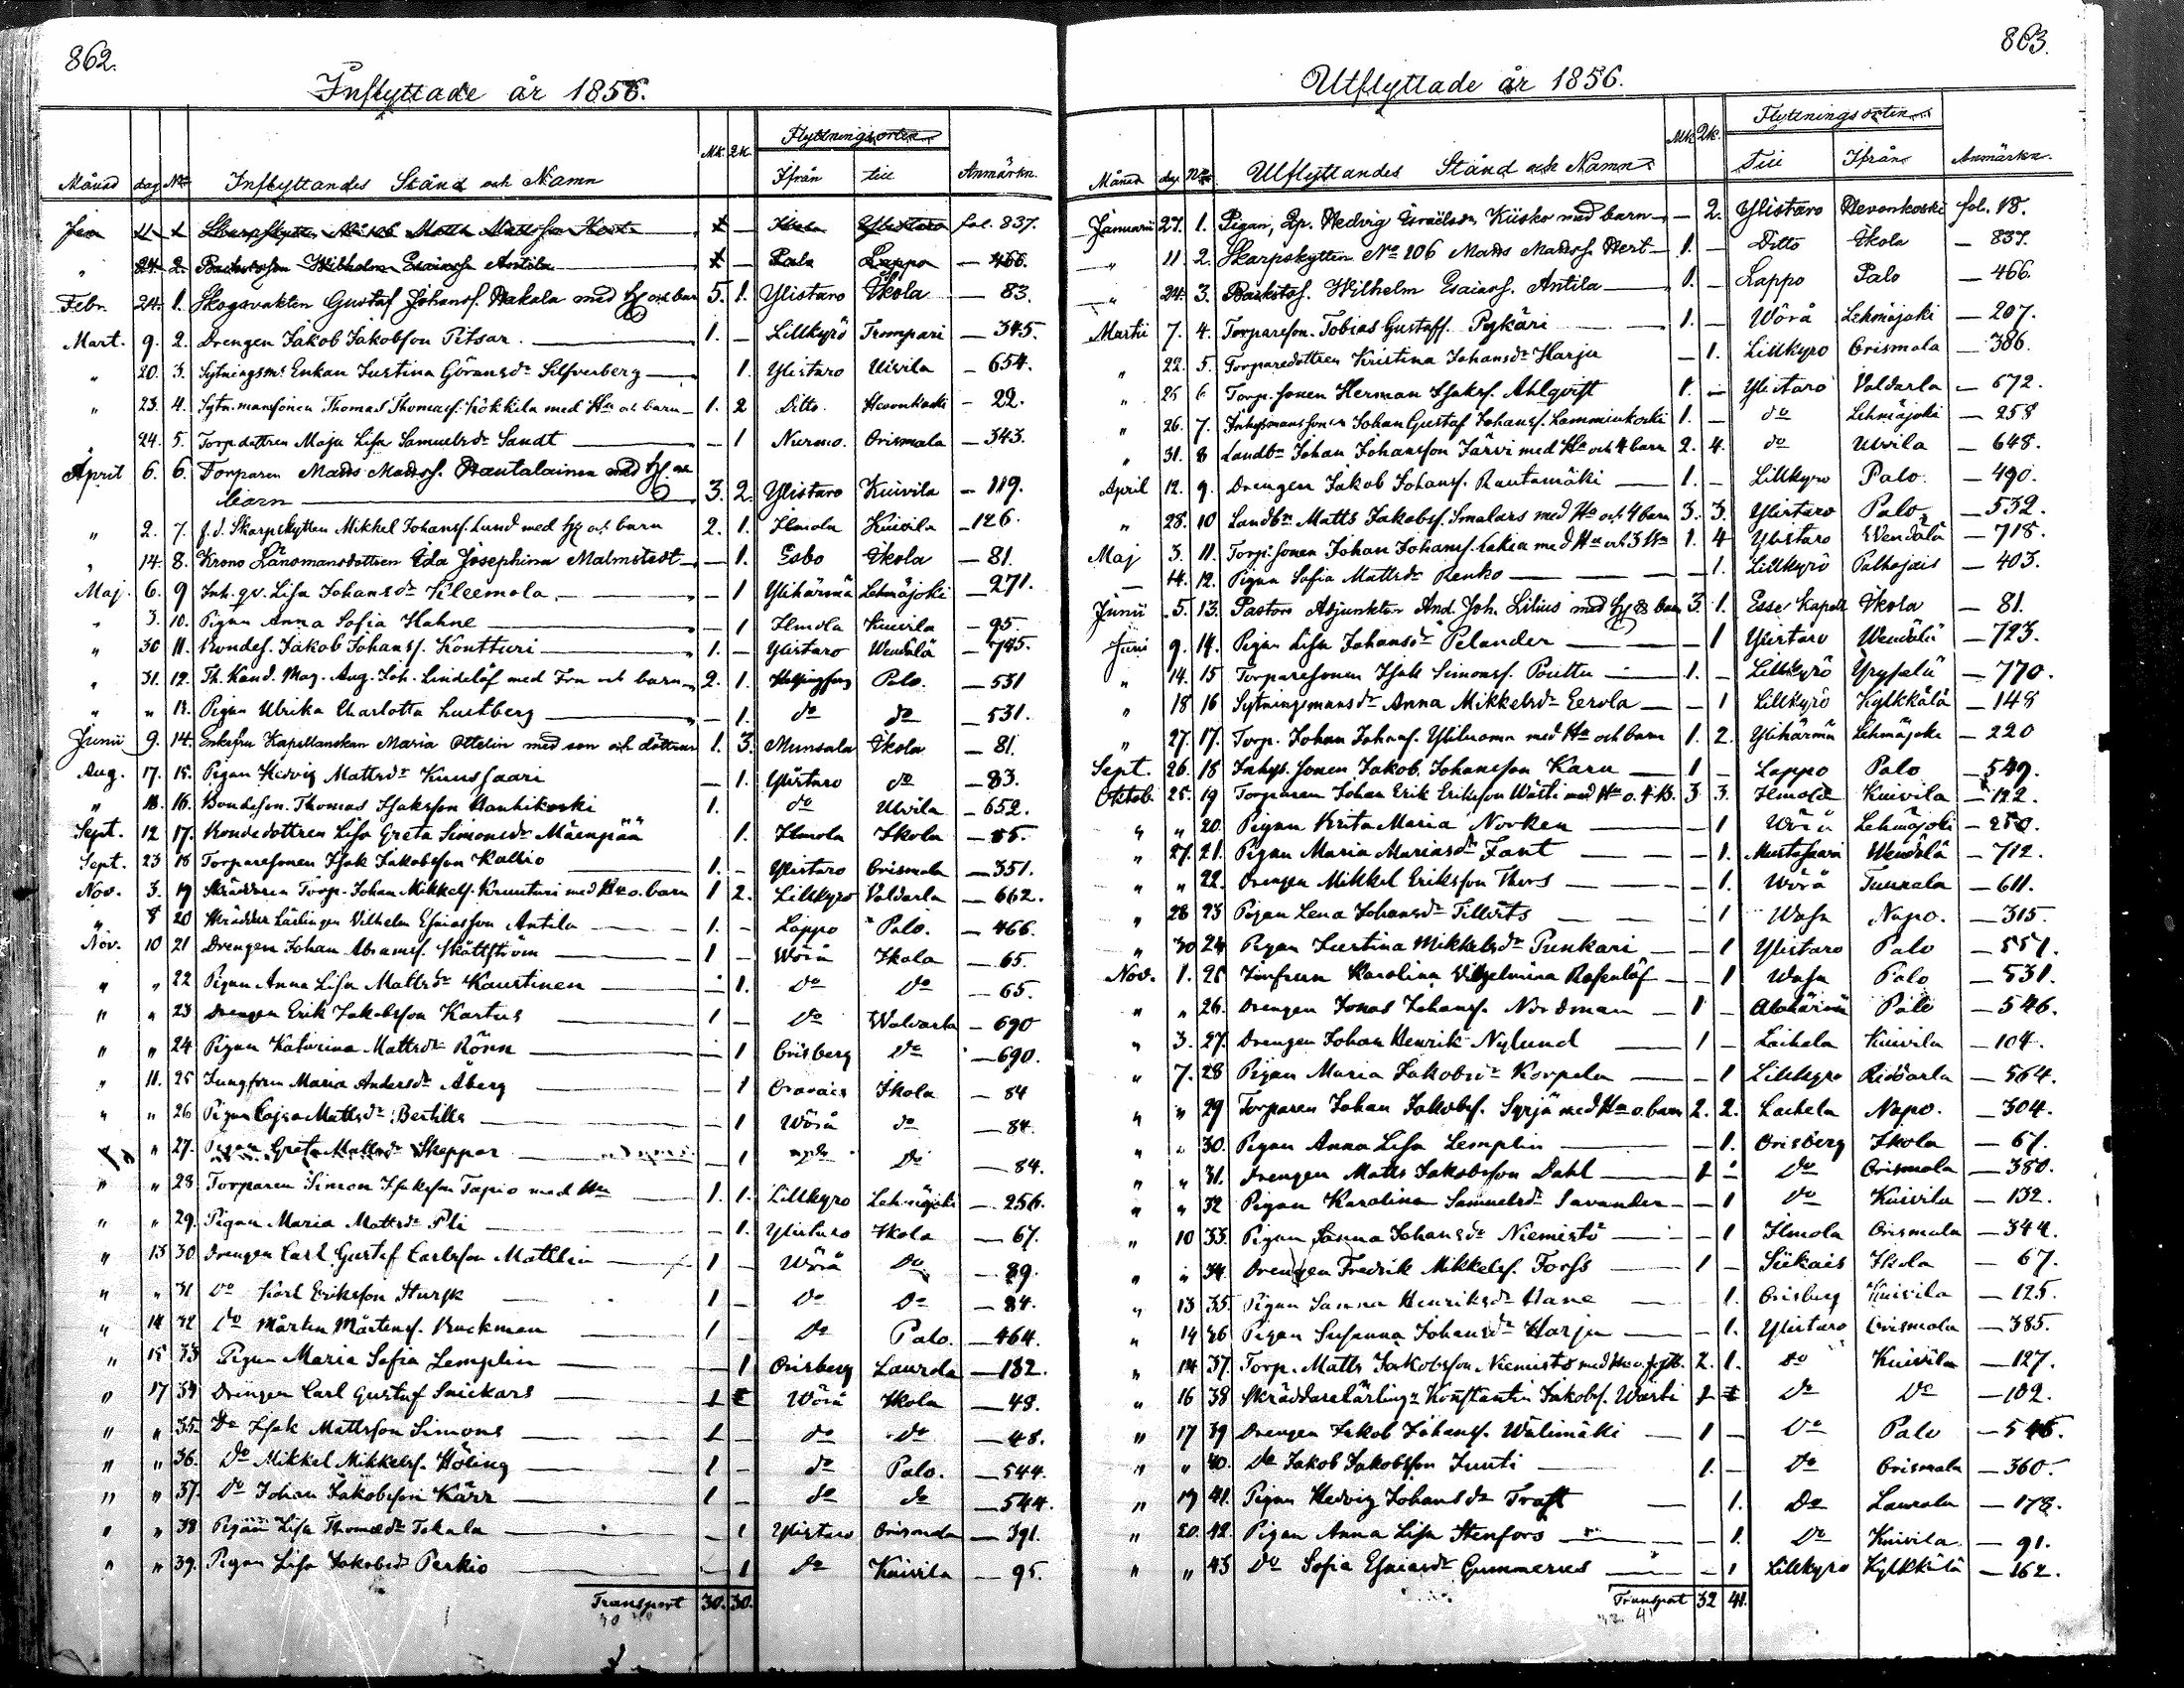 862.
Inflyttade år 1856.
Flyttningsorten
Månad dag No Inflyttandes Stånd och Namn Mk. Qk. Ifrån till Anmärkn.
Jan 11 1 Skarpskytten No 106 Matts Mattsson Hert 1 — Ikola Ylistaro fol. 837.
" 24. 2. Backstuson Wilhelm Esaiass. Antila 1 — Palo Lappo — 466.
Febr. 24. 1. Skogsvakten Gustaf Johanss. Hakala med Hu och barn 5. 1. Ylistaro Ikola — 83.
Mart. 9. 2. Drengen Jakob Jakobsson Pitsar. — 1. — Lillkyrö Trompari — 345.
" 20. 3. Sytningsms Enkan Justina Göransdr Silfverberg — 1. Ylistaro Ulvila — 654.
" 23. 4. Sytn.mansonen Thomas Thomass. Kökkila med Hu och barn — 1. 2 Ditto. Hevonkoski — 22.
24. 5. Torp.dottren Maja Lisa Samuelsdr Sandt — — 1 Nurmo. Orismala — 343.
April 6. 6. Torparen Matts Mattss. Hautalainen med Hu och
barn — 3. 2. Ylistaro Kuivila — 119.
" 2. 7. f.d. Skarpskytten Mikkel Johanss. Lund med Hu och barn 2. 1. Ilmola Kuivila — 126.
" 14. 8. Krono Länsmansdottren Ida Josephina Malmstedt — — 1. Esbo Ikola — 81.
Maj. 6. 9 Inh. qv. Lisa Johansdr Sileemola. — — 1 Ylihärmä Lehmäjoki — 271.
" 3. 10. Pigan Anna Sofia Hahne — — 1 Ilmola Kuivila — 95.
" 30 11. Bondes. Jakob Johanss. Kontturi — 1. — Ylistaro Wendälä — 745.
" 31. 12. Th. Kand. Mag. Aug. Joh. Lindelöf med Fru och barn — 2. 1. Helsingfors Palo. — 531
" " 13. Pigan Ulrika Charlotta Lustberg — — 1. do do — 531.
Junii 9. 14. Enkefru Kapellanskan Maria Ottelin med son och döttrar 1. 3. Munsala Ikola — 81.
Aug. 17. 15. Pigan Hedvig Mattsdr Kuussaari — 1. Ylistaro do — 83.
" 18. 16. Bondeson. Thomas Isaksson Hanhikoski 1. do Ulvila — 652.
Sept. 12 17. Bondedottren Lisa Greta Simonsdr Mäenpää 1. Ilmola Ikola — 85.
Sept. 23 18 Torparesonen Isak Jakobsson Kallio 1. — Ylistaro Orismala — 351.
Nov. 3. 19 Skräddaren Torp. Johan Mikkels. Kuunturi med Hu o. barn 1 2. Lillkyro Valdarla — 662.
" 8 20 Skräddar Lärlingen Vilhelm Esaiasson Antila — 1. — Lappo Palo. — 466.
Nov. 10 21 Drengen Johan Abramss. Skåttström — 1 — Wörå Ikola — 65.
" " 22 Pigan Anna Lisa Mattsdr Kaustinen — — 1. Do Do — 65.
" " 23 Drengen Erik Jakobsson Kartus — 1 — Do Waldarla — 690
" " 24 Pigan Katarina Mattsdr Rönn — — 1 Orisberg Do — 690.
" 11. 25 Jungfrun Maria Andersdr Åberg — — 1 Oravais Ikola — 84
" " 26 Pigan Cajsa Mattsdr Bertills — — 1 Wörå do — 84.
" 27. Pigan Greta Mattsdr Skeppar — 1 Do — 84.
" " 28 Torparen Simon Isaksson Tapio med Hu — 1. 1. Lillkyro Lehmäjoki — 256.
" " 29. Pigan Maria Mattsdr Pli — — 1. Ylistaro Ikola — 67.
" 13 30 Drengen Carl Gustaf Carlsson Mattlin — 1 — Wörå Do — 89.
" " 31 Do Karl Eriksson Stursk — 1 — Do Do — 84.
" 14 32 Do Mårten Mårtenss. Backman — 1 — Do Palo. — 464.
" 15 33 Pigan Maria Sofia Lemplin — — 1 Orisberg Laurola — 182.
" 17 34 Drengen Carl Gustaf Snickars — 1 Wörå Ikola — 48.
" " 35. Do Isak Mattsson Simons — 1 — do do — 48.
" " 36. Do Mikkel Mikkelss. Höling — 1 — do Palo. — 544.
" " 37. Do Johan Jakobsson Kärr — 1 — do do — 544.
" " 38 Pigan Lisa Thomasdr Tokala — — 1 Ylistaro Orismala — 391.
" " 39. Pigan Lisa Jakobsdr Perkio — — 1 Do Kuivila — 95.
Transport 30. 30.
863.
Utflyttade år 1856.
Flyttningsorten
Månad dag No Utflyttandes Stånd och Namn Mk Qk. Till Ifrån Anmärkn.
Januarii 27. 1. Pigan, Qp. Hedvig Israelsdr Kiisko med barn — — 2. Ylistaro Hevonkoski fol. 18.
" 11. 2. Skarpskytten No 106 Matts Mattss. Hert — 1. — Ditto Ikola — 837.
" 24. 3. Backstos. Wilhelm Esaiass. Antila — 1. — Lappo Palo — 466.
Martii 7. 4. Torpareson. Tobias Gustafs. Pykäri — 1. — Wörå Lehmäjoki — 207.
" 22. 5. Torparedottren Kristina Johansdr Harju — 1. Lillkyro Orismala — 386.
" 25 6 Torp.sonen Herman Isakss. Ahlqvist 1. — Ylistaro Valdarla — 672.
" 26. 7. Inhysmanssonen Johan Gustaf Johanss. Lamminkoski 1. — do Lehmäjoki — 258
" 31. 8 Landbn Johan Johansson Järvi med Hu och 4 barn 2. 4. do Ulvila — 648.
April 12. 9. Drengen Jakob Johanss. Rautamäki — 1. — Lillkyro Palo. — 490.
" 28. 10 Landbn Matts Jakobss. Smalars med Hu och 4 barn 3. 3. Ylistaro Palo — 532.
Maj 3. 11. Torp.sonen Johan Johanss. Lakia med Hu och 3 bn 1. 4 Ylistaro Wendälä — 718.
— 14. 12. Pigan Sofia Mattsdr Renko — — — 1. Lillkyrö Palhojais — 403.
Junii 5. 13. Pastors Adjunkten And. Joh. Lilius med Hu & barn 3. 1. Esse Kapell Ikola — 81.
Juni 9. 14. Pigan Lisa Johansdr Pelander — — 1 Ylistaro Wendälä — 723.
" 14. 15 Torparesonen Isak Simonss. Pouttu — 1. — Lillkyrö Yrysalü — 770.
" 18 16 Sytningsmansdr Anna Mikkelsdr Eerola — — 1 Lillkyrö Kylkkälä — 148
" 27. 17. Torp. Johan Johanss. Yliluoma med Hu och barn 1. 2. Ylihärmä Lehmäjoki — 220
Sept. 26. 18 Inhys.sonen Jakob. Johansson Karu — 1 — Lappo Palo — 549.
Oktob. 25. 19 Torparen Johan Erik Eriksson Wästi med Hu o. 4 B. 3 3. Ilmola Kuivila — 122.
" " 20. Pigan Brita Maria Norken — — 1 Wörå Lehmäjoki — 250.
" 27. 21. Pigan Maria Mariasdr Fant — — 1. Mustasaari Wendälä — 712.
" " 22. Drengen Mikkel Eriksson Thors — — 1. Wörå Tuurala — 611.
" 28 23 Pigan Lena Johansdr Tillists — — 1 Wasa Napo. — 315.
" 30 24 Pigan Justina Mikkelsdr Punkari — — 1 Ylistaro Palo — 551.
Nov. 1. 25 Jmfrun Karolina Vilhelmina Rosenlöf — — 1 Wasa Palo — 531.
" " 26. Drengen Jonas Johanss. Nordman — 1 — Alahärmä Palo — 546.
" 3. 27. Drengen Johan Henrik Nylund — 1 — Laihela Kuivila — 104.
" 7. 28 Pigan Maria Jakobsdr Korpela — — 1 Lillkyro Riddarla — 564.
" " 29 Torparen Johan Jakobss. Syrjä med Hu o. barn 2. 2. Laihela Napo. — 304.
" " 30. Pigan Anna Lisa Lemplin — — 1. Orisberg Ikola — 67.
" " 31. Drengen Matts Jakobsson Dahl — 1 — Do Orismala — 380.
" " 32 Pigan Karolina Samuelsdr Savander — — 1 Do Kuivila — 132.
" 10 33. Pigan Sanna Johansdr Niemistö — — 1 Ilmola Orismala — 344.
" " 34. Drengen Fredrik Mikkelss. Forss — 1 — Sükais Ikola — 67.
" 13 35. Pigan Sanna Henriksdr Hane — 1. Orisberg Kuivila — 125.
" 14 36 Pigan Susanna Johansdr Harju — — 1. Ylistaro Orismala — 385.
" 14 37. Torp. Matts Jakobsson Niemistö med Hu o. 2. 1. do Kuivila — 127.
" 16 38 Skräddarelärlingn Konstantin Jakobs. Wästi 1 Do Do — 102.
" 17 39 Drengen Jakob Johanss. Wälimäki — 1 — Do Palo — 546.
" " 40. Do Jakob Jakobsson Juuti — 1. — Do Orismala — 360.
" 19 41. Pigan Hedvig Johansdr Traft — 1. Do Laurola — 178.
" 20. 42. Pigan Anna Lisa Stenfors — 1. Do Kuivila — 91.
" " 43 Do Sofia Esaiasdr Gummerus — — 1 Lillkyro Kylkkälä — 162.
Transport 32 41.